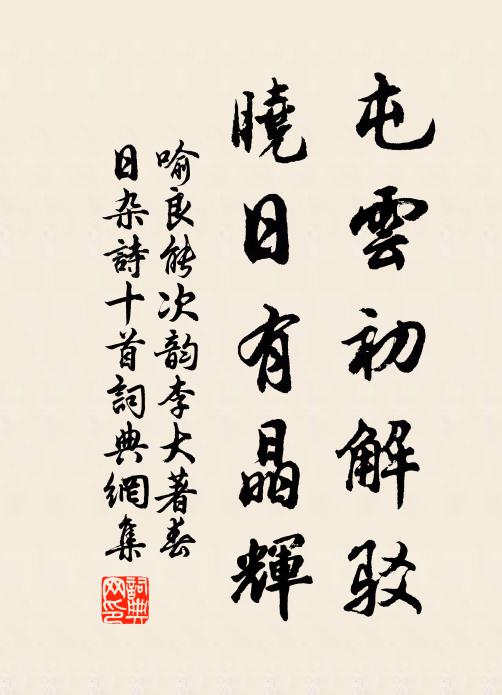 屯雲初解駁
曉日有晶輝
喻良能次韵李大著春
日杂詩十首詞典網集
詞典
网印